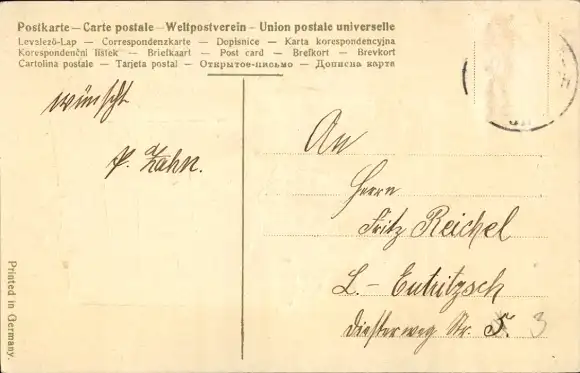 Postkarte — Carte postale — Weltpostverein — Union postale universelle
Levelező-Lap — Correspondenzkarte — Dopisnice — Karta korespondencyjna
Korespondenční lístek — Briefkaart — Post card — Brefkort — Brevkort
Cartolina postale — Tarjeta postal — Открытое-письмо — Дописна карта
wünscht
P. Zahn.
An
Herrn
Fritz Reichel
L.- Eutritzsch
Diesterweg Str. 5. 3
Printed in Germany.